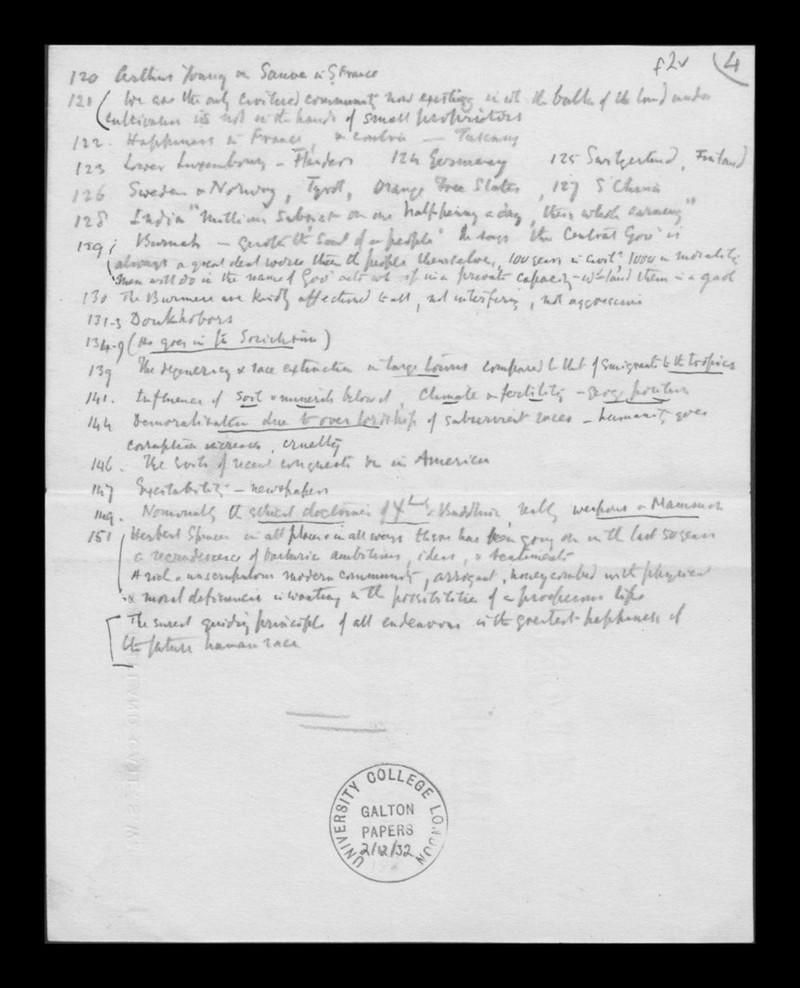 f2v (4
120 Arthur Young on Sauve in S. France
121 We are the only civilised community now existing in wh the bulk of the land under
cultivation is not in the hands of small proprietors
122. Happiness in France, & contrie — Tuscany
123 Lower Luxembourg - Flanders 124 Germany 125 Switzerland, Finland
126 Sweden & Norway, Tyrol, Orange Free States, 127 S China
128 India "millions subsist on one halfpenny a day, their whole earnings"
129; Burmah — quoth the Soul of a people" He says "the Central Gov is
always a great deal worse than the people themselves, 100 years in civiln 1000 in morality
men will do in the name of Gov acts wh if in a private capacity wd land them in a gaol
130 The Burmese are kindly affectioned to all, not interfering, not aggressive
131-3 Doukhobors
134-9 (He goes in for Socialism)
139 The degeneracy & race extinction in large towns compared to that of emigrants to the tropics
141. Influence of soil & minerals below it Climate & fertility - geogr position
144 Demoralisation due to over lordship of subservient races - humanity goes
corruption increases, cruelty
146. The evils of recent conquests on in America
147 Excitability - newspapers
149. Nominally the ethical doctrines of Xty & Buddhism, really weapons & Mammon
151 Herbert Spencer in all places & in all ways there has been going on in the last 50 years
a recrudescence of barbaric ambitions, ideas, & sentiments
A rich & unscrupulous modern community, arrogant, honeycombed with physical
& moral deficiencies is wanting in the possibilities of a prosperous life
The surest guiding principle of all endeavour is the greatest happiness of
the future human race
UNIVERSITY COLLEGE LONDON
GALTON
PAPERS
2/12/32